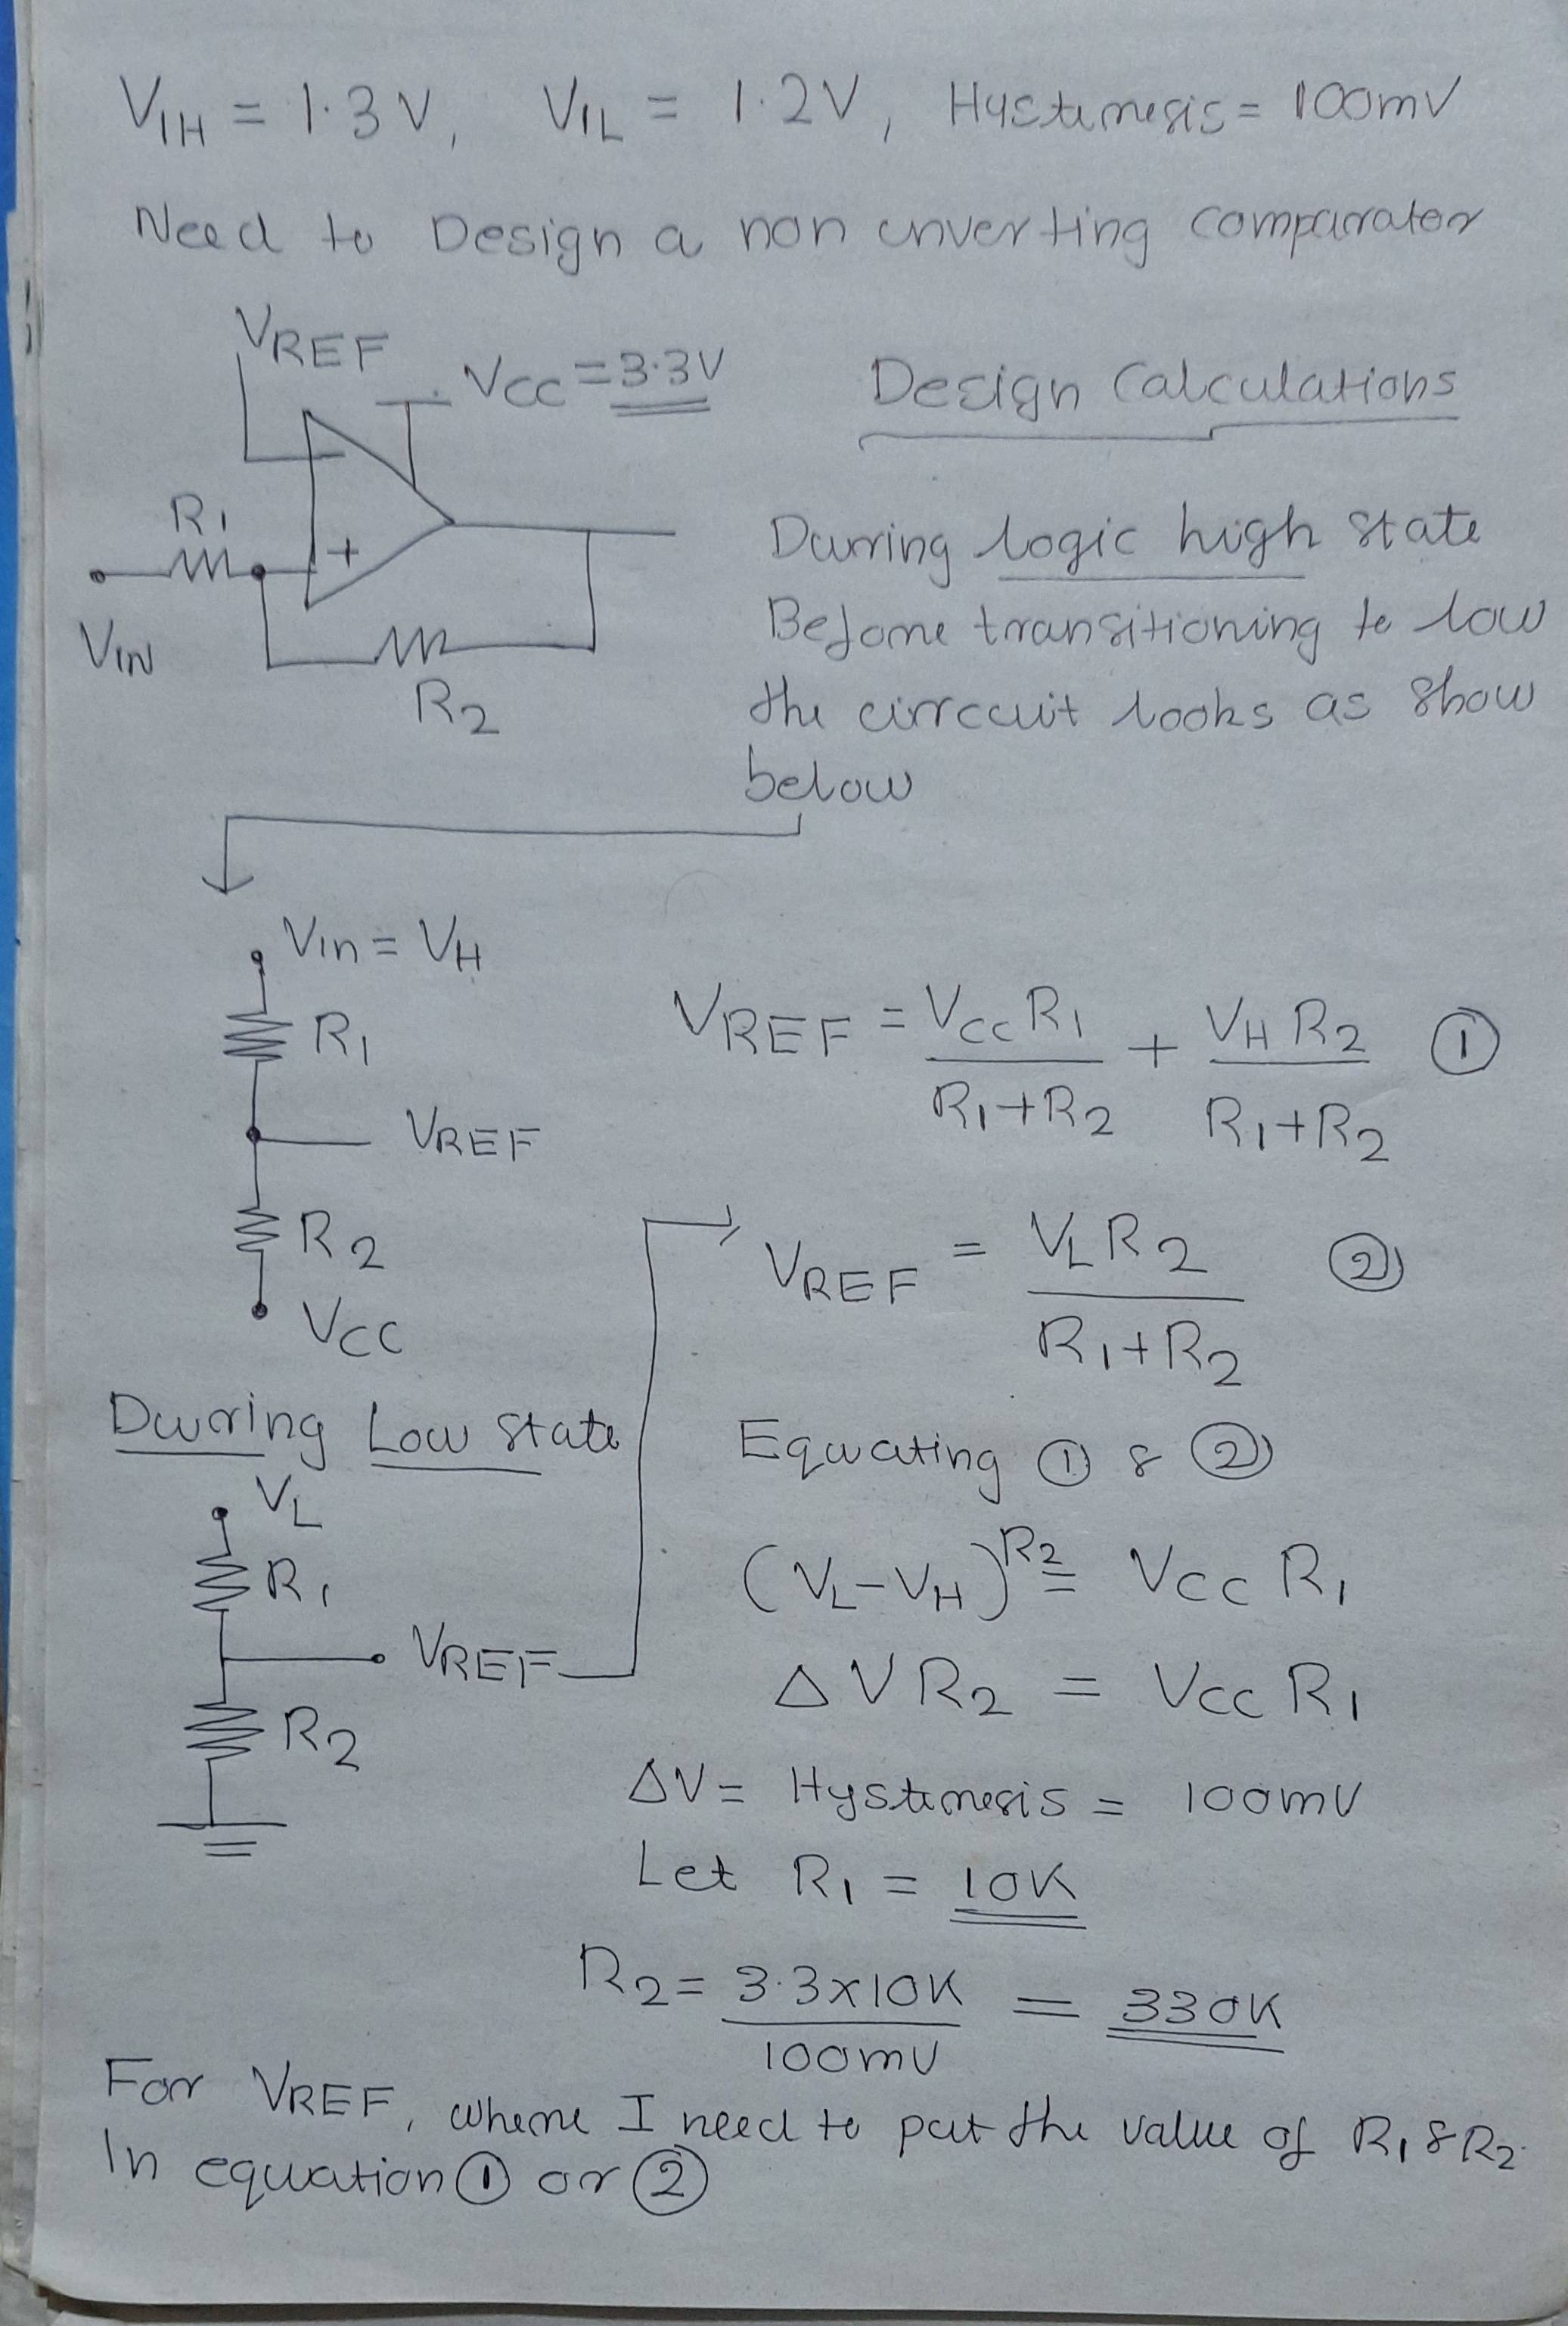 VIH = 1.3V, VIL = 1.2V, Hysteresis = 100mV
Need to Design a non inverting comparator
VREF
VCC = 3.3V
Design Calculations
R1
+
VIN
R2
During logic high state
Before transitioning to low
the circuit looks as show
below
Vin = VH
R1
VREF
R2
VCC
VREF = VCC R1 / R1+R2 + VH R2 / R1+R2 ①
VREF = VL R2 / R1+R2 ②
During Low state
VL
R1
VREF
R2
Equating ① & ②
(VL-VH)R2 = VCC R1
ΔV R2 = VCC R1
ΔV = Hysteresis = 100mV
Let R1 = 10K
R2 = 3.3x10K / 100mV = 330K
For VREF, where I need to put the value of R1 & R2
In equation ① or ②